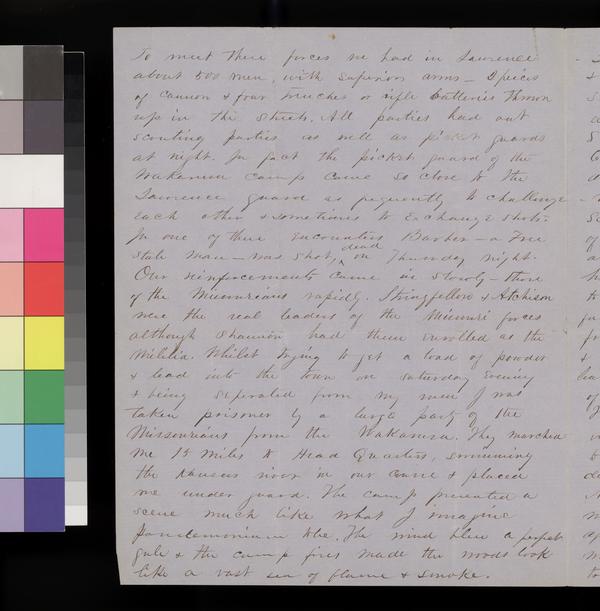 To meet these forces we had in Lawrence
about 500 men, with superior arms — 2 pieces
of cannon & four trenches or rifle batteries thrown
up in the streets. All parties had out
scouting parties as well as picket guards
at night. In fact the picket guard of the
Wakarusa camp came so close to the
Lawrence guard as frequently to challenge
each other & sometimes to exchange shots.
In one of these encounters Barber — a Free
State man — was shot, dead on Thursday night.
Our reinforcements came in slowly — those
of the Missourians rapidly. Stringfellow & Atchison
were the real leaders of the Missouri forces
although Shannon had them enrolled as the
Militia. Whilst trying to get a load of powder
& lead into the town on Saturday evening
& being separated from my men I was
taken prisoner by a large party of the
Missourians from the Wakarusa. They marched
me 15 miles to Head Quarters, swimming
the Kansas river in our course & placed
me under guard. The camp presented a
scene much like what I imagine
Pandemonium to be. The wind blew a perfect
gale & the camp fires made the woods look
like a vast sea of flame & smoke.